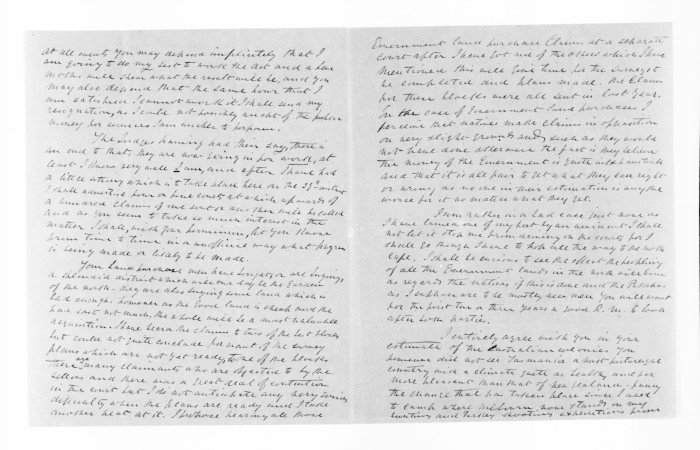 at all events you may depend implicitly that I
am going to do my best to work the Act and a few
months will show what the result will be, and you
may also depend that the same hour that I
am satisfied I cannot work it I shall send my
resignation, as I could not possibly accept of the public
money for services I am unable to perform.
The Judges having had their say, there is
an end to that, they are now going in for work, at
least I know very well I am, and after I have had
a little sitting which is to take place here on the 23rd instant
I shall advertise for a Court at which upwards of
a hundred claims of one sort or another will be called
and as you seem to take so much interest in the
matter I shall, with your permission, let you know
from time to time in an unofficial way what progress
is being made or likely to be made.
Your Land purchase men have bought, or are buying,
a splendid district which will one day be the Garden
of the north. They are also buying some land which is
bad enough. however as the good land is cheap and the
bad cost not much, the whole will be a most valuable
acquisition. I have heard the claims to two of the blocks
but could not quite conclude for want of the survey
plans which are not yet ready, to one of the blocks
There are many claimants who are objected to by the
sellers and there was a great deal of contention
in the court but I do not anticipate any very serious
difficulty when the plans are ready and I take
another heat at it. I propose hearing all those
Government land purchase claims at a separate
court after I have got rid of the others which I have
mentioned this will give time for the surveys to
be completed and plans made. The claims
for these blocks were all sent in last year.
In the case of Government land purchases, I
perceive that natives make claims in opposition
on very slight grounds and, such as they would
not have done otherwise the fact is they believe
the money of the Government is quite inexhaustible
and that it is all fair to get what they can right
or wrong as no one in their estimation is any the
worse for it no matter what they get.
I am rather in a bad case just now as
I have lamed one of my feet by an accident I shall
not let it stop me from going on this court for I
shall go though I have to hop all the way to the north
Cape. I shall be curious to see the effect the peopling
of all the Government lands in the north will have
as regards the natives if this is done and the Pakehas
as I suppose are to be mostly new men you will want
for the first two or three years a good R. M. to look
after both parties.
I entirely agree with you in your
estimate of the Australian colonies you
however did not see Tasmania a most picturesque
country with a climate quite as healthy and far
more pleasant than that of New Zealand - fancy
the change that has taken place since I used
to camp where Melbourne now stands on my
hunting and turkey shooting expeditions from